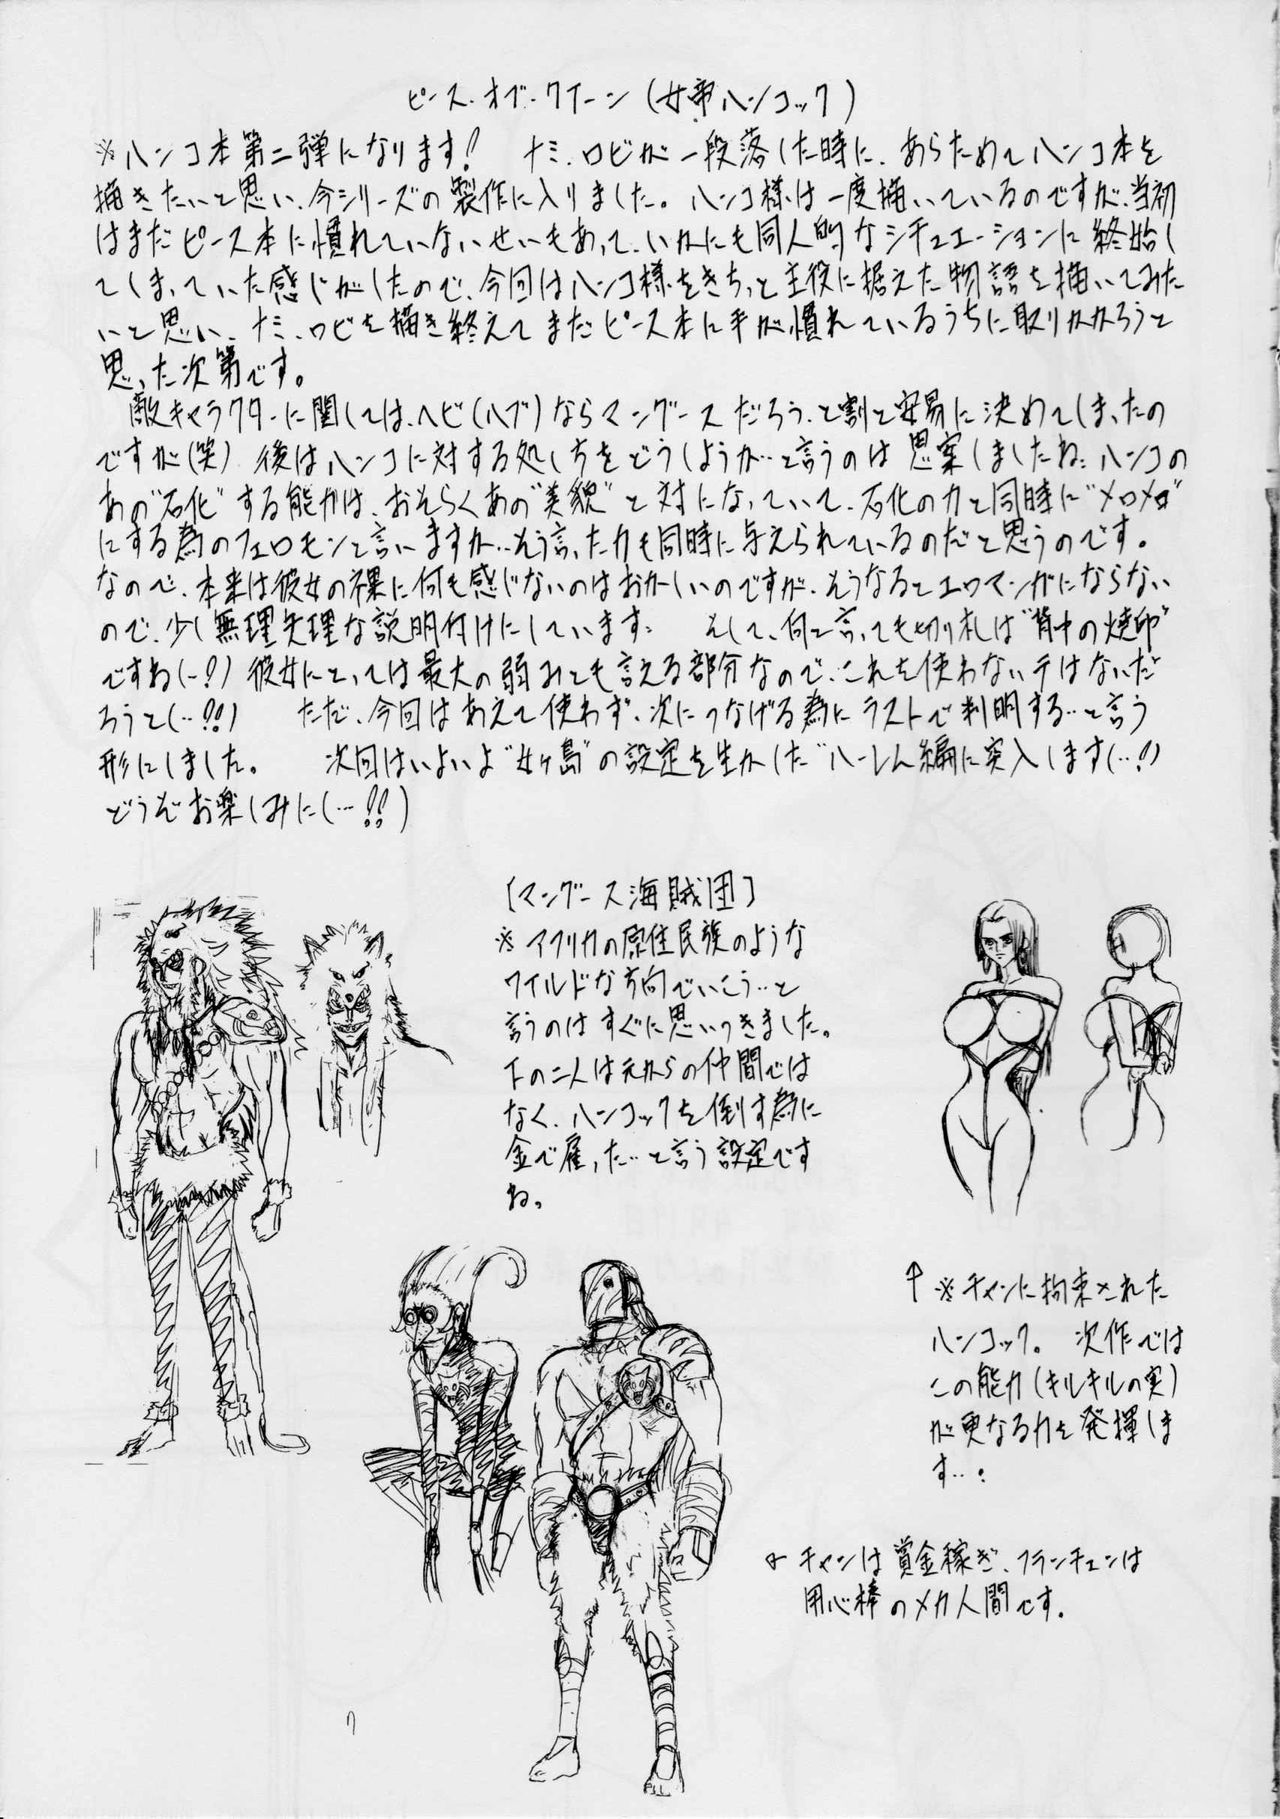 ピース・オブ・クイーン(女帝ハンコック)
※ハンコ本第二弾になります! ナミ、ロビが一段落した時に、あらためてハンコ本を
描きたいと思い、今シリーズの製作に入りました。ハンコ様は一度描いているのですが、当初
はまだピース本に慣れていないせいもあって、いかにも同人的なシチュエーションに終始し
てしまっていた感じがしたので、今回はハンコ様をきちっと主役に据えた物語を描いてみた
いと思い、ナミ、ロビを描き終えてまだピース本に手が慣れているうちに取りかかろうと
思った次第です。
敵キャラクターに関しては、ヘビ(ハブ)ならマングースだろう、と割と安易に決めてしまったの
ですが(笑) 後はハンコに対する処しちをどうしようか…と言うのは思案しましたね、ハンコの
あの"石化"する能力は、おそらくあの"美貌"と対になっていて、石化の力と同時に"メロメロ"
にする為のフェロモンと言いますか…そう言った力も同時に与えられているのだと思うのです。
なので、本来は彼女の裸に何も感じないのはおかしいのですが、そうなるとエロマンガにならない
ので、少し無理矢理な説明付けにしています、 そして、何て言っても切り札は"背中の焼印"
ですね(…!)彼女にとっては最大の弱みとも言える部分なので、これを使わないテはないだ
ろうと(…!!) ただ、今回はあえて使わず、次につなげる為にラストで判明する…と言う
形にしました。 次回はいよいよ"女ヶ島"の設定を生かした"ハーレム編に突入します(…!)
どうぞお楽しみに(…!!)
[マングース海賊団]
※アフリカの原住民族のような
ワイルドな方向でいこう…と
言うのはすぐに思いつきました。
下の二人は元からの仲間では
なく、ハンコックを倒す為に
金で雇った…と言う設定です
ね。
↑※チャンに拘束された
ハンコック。 次作では
この能力(キルキルの実)
が更なる力を発揮しま
す…。
チャンは賞金稼ぎ、フランチェンは
用心棒のメカ人間です。